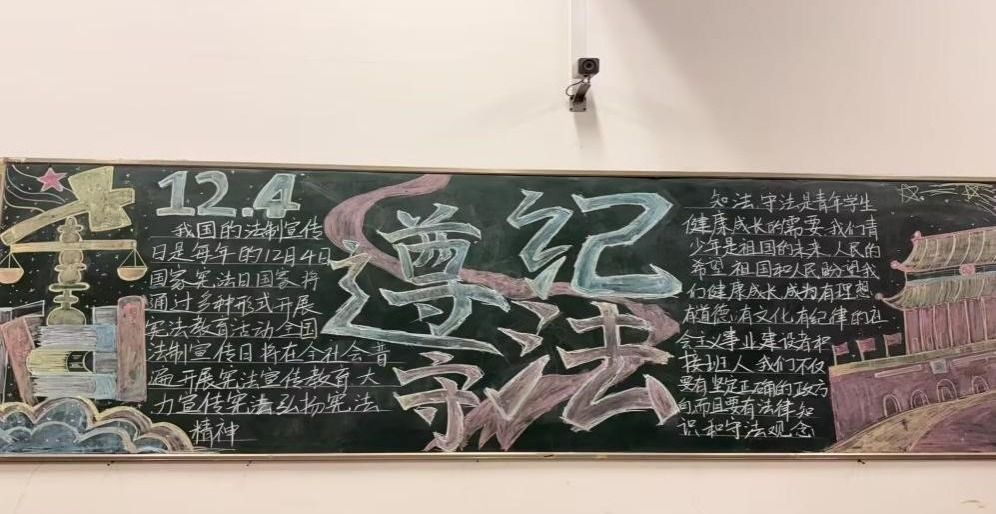 12.4
我国的法制宣传
日是每年的12月4日
国家宪法日国家将
通过多种形式开展
宪法教育活动全国
法制宣传日将在全社会普
遍开展宪法宣传教育大
力宣传宪法弘扬宪法
精神
遵纪
守法
知法守法是青年学生
健康成长的需要我们青
少年是祖国的未来人民的
希望祖国和人民盼望我
们健康成长成为有理想
有道德有文化有纪律的社
会主义事业建设者和
接班人我们不仅
要有坚定正确的政方
向而且要有法律知
识和守法观念